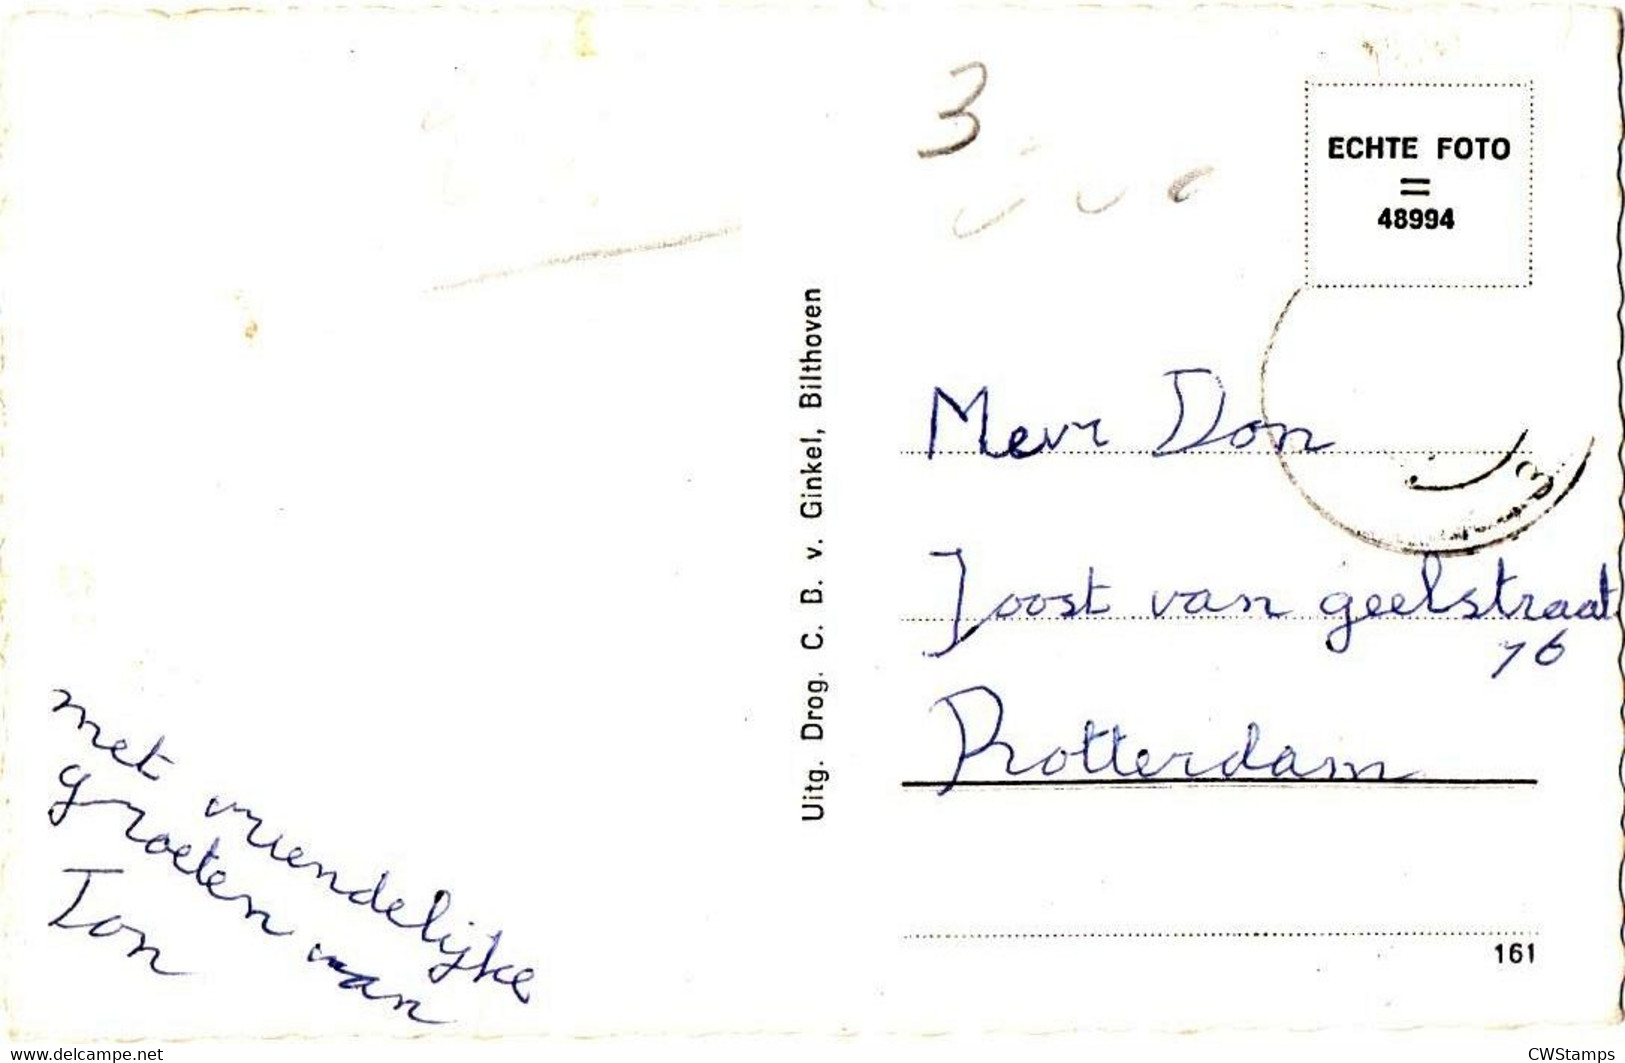 3
ECHTE FOTO
=
48994
Uitg. Drog. C. B. v. Ginkel, Bilthoven
Mevr Don
Joost van geelstraat
76
Rotterdam
met vriendelijke
groeten van
Ton
161
www.delcampe.net
CWStamps